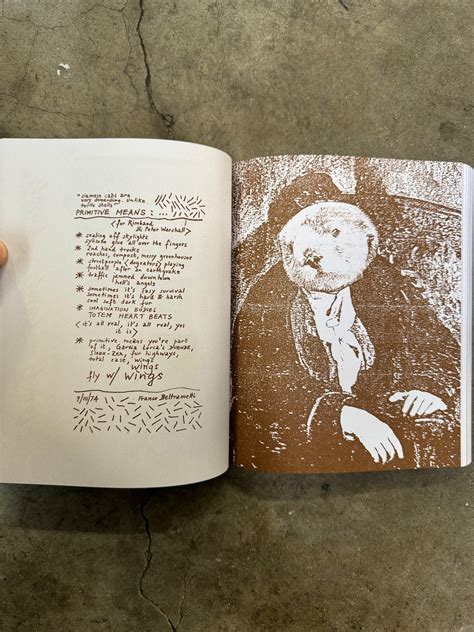 "siamese cats are
very demanding, unlike
turtle shells"
PRIMITIVE MEANS: ...
(for Rimbaud
& Peter Warshall)
* sealing off skylights
sylicide glue all over the fingers
* 2nd hand trucks
roaches, compost, messy greenhouse
* streetpeople (dogeaters) playing
football after an earthquake
* traffic jammed downtown
hell's angels
* sometimes it's easy survival
sometimes it's hard & harsh
soul soft dark fur
* IMAGINATION BODIES
TOTEM HEART BEATS
(it's all real, it's all real, yes
it is)
* primitive means you're part
of it, Garcia Lorca's
Sioux-Zen, for highways,
total case, wings
wings
fly w/ wings
9/10/74 Franco Beltrametti